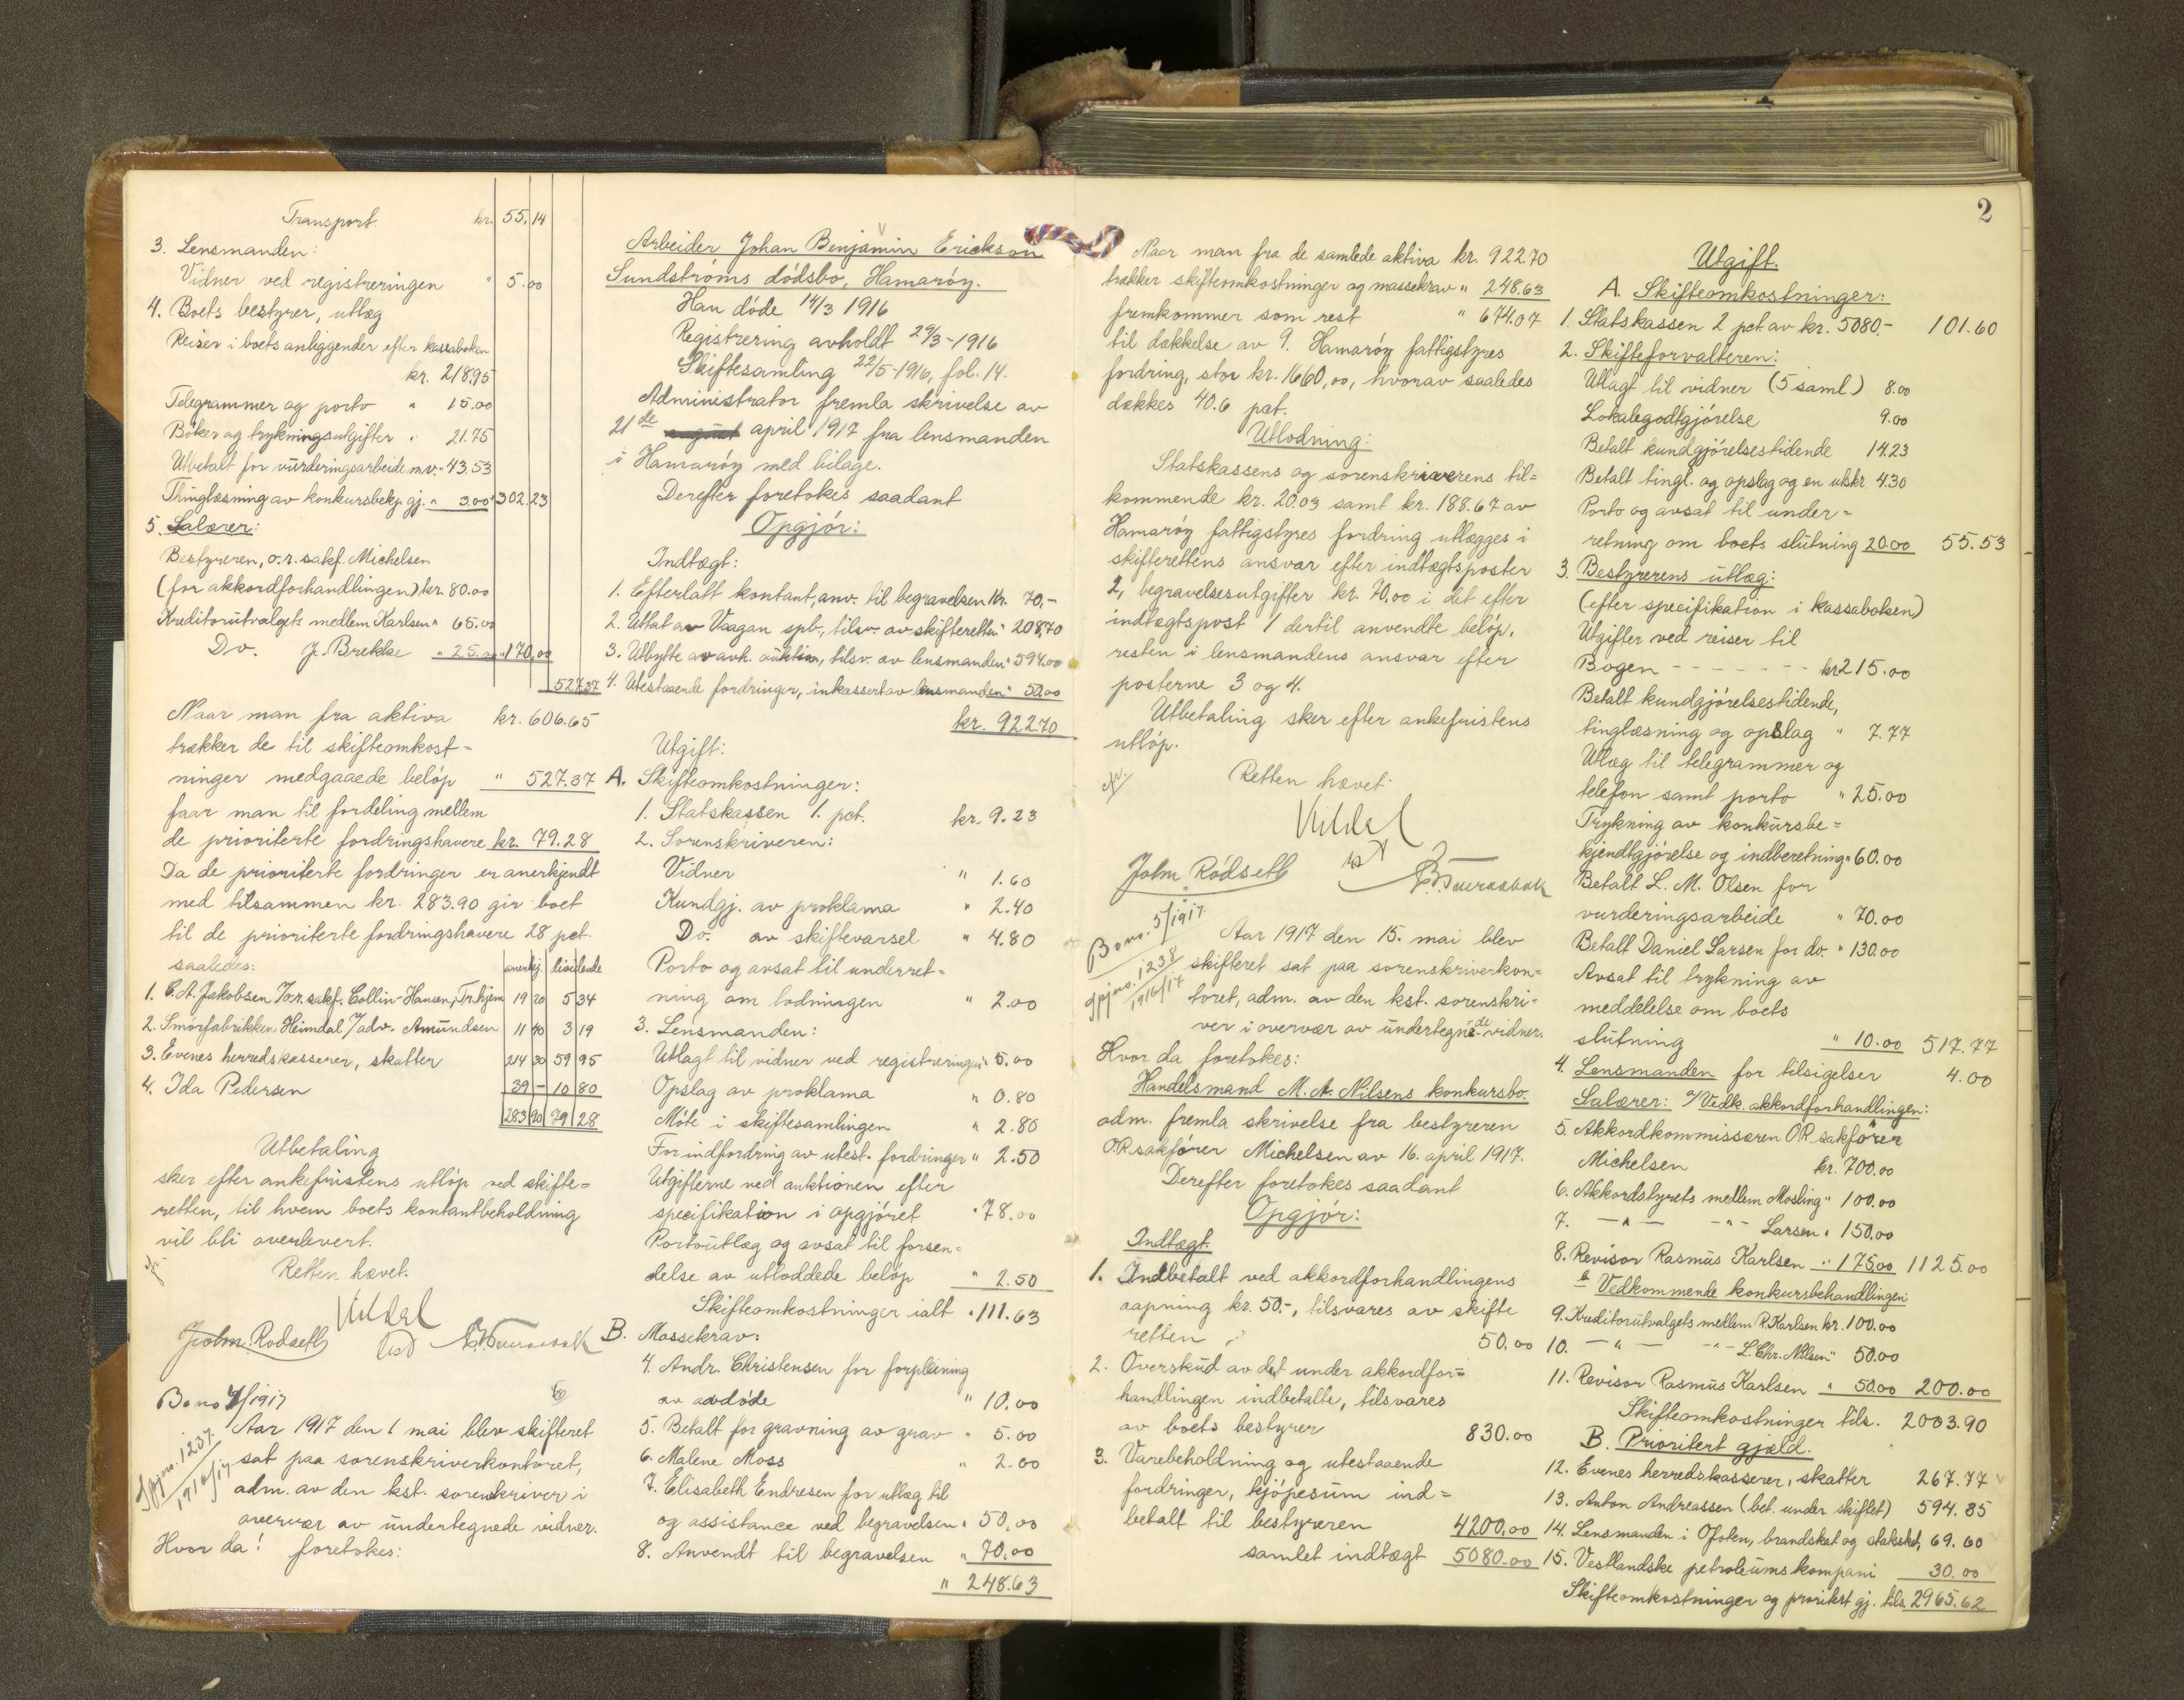 Transport. kr. 55.14
3. Lensmanden:
Vidner ved registreringen " 5.00
4. Boets bestyrer, utlæg
Reiser i boets anliggender efter kassaboken
kr. 218.95
Telegrammer og porto " 15.00
Bøker og trykningsutgifter " 21.75
Utbetalt for vurderingsarbeide m.v. " 43.53
Thinglæsning av konkursbekj.gj. " 3.00 302.23
5. Salærer:
Bestyreren, o.r. sakf. Michelsen
(for akkordforhandlingen) kr. 80.00
Kreditorutvalgets medlem Karlsen " 65.00
Do. J. Brekke " 25.00 " 170.00
527.37
Naar man fra aktiva kr. 606.65
trækker de til skifteomkost=
ninger medgaaede beløp " 527.37
faar man til fordeling mellem
de prioriterte fordringshavere kr. 79.28
Da de prioriterte fordringer er anerkjendt
med tilsammen kr. 283.90 gir boet
til de prioriterte fordringshavere 28 pct.
saaledes: anerkj. dividende
1. C. A. Jakobsen v/o.r. sakf. Collin-Hansen, Tr.hjem 19 20 5 34
2. Smørfabrikken Heimdal v/adv. Amundsen 11 40 3 19
3. Evenes herredskasserer, skatter 214 30 59 95
4. Ida Pedersen 39 - 10 80
283 90 79 28
Utbetaling
sker efter ankefristens utløp ved skifte=
retten, til hvem boets kontantbeholdning
vil bli overlevert.
Retten hævet.
Kildal
John. Rødseth
Bo no 4/1917
Spjno. 1237
1916/17
Aar 1917 den 1 mai blev skifteret
sat paa sorenskriverkontoret,
adm. av den kst. sorenskriver i
overvær av undertegnede vidner.
Hvor da! foretokes:
Arbeider Johan Benjamin Erickson
Sundstrøms dødsbo, Hamarøy.
Han døde 14/3 1916
Registrering avholdt 29/3-1916
Skiftesamling 22/5-1916, fol. 14.
Administrator fremla skrivelse av
21de august april 1917 fra lensmanden
i Hamarøy med bilage.
Derefter foretokes saadant
Opgjør:
Indtægt:
1. Efterlatt kontant, anv. til begravelsen kr. 70,-
2. Uttat av Vaagan spb., tilsv. av skifteretten " 208,70
3. Utbytte av avh. auktion, tilsv. av lensmanden " 594.00
4. Utestaaende fordringer, inkassert av lensmanden " 50.00
kr. 922.70
Utgift:
A. Skifteomkostninger:
1. Statskassen 1. pct. kr. 9.23
2. Sorenskriveren:
Vidner " 1.60
Kundgj. av proklama " 2.40
Do. av skiftevarsel " 4.80
Porto og avsat til underret=
ning om lodningen " 2.00
3. Lensmanden:
Utlagt til vidner ved registreringen " 5.00
Opslag av proklama " 0.80
Møte i skiftesamlingen " 2.80
For indfordring av utest. fordringer " 2.50
Utgifterne ved auktionen efter
specifikation i opgjøret " 78.00
Portoutlæg og avsat til forsen=
delse av utloddede beløp " 2.50
Skifteomkostninger ialt " 111.63
B. Massekrav:
4. Andr. Christensen for forpleining
av avdøde " 10.00
5. Betalt for gravning av grav " 5.00
6. Malene Moss " 2.00
7. Elisabeth Endresen for utlæg til
og assistance ved begravelsen " 50,00
8. Anvendt til begravelsen " 70.00
" 248.63
Naar man fra de samlede aktiva kr. 922.70
trækker skifteomkostninger og massekrav " 248.63
fremkommer som rest " 674.07
til dækkelse av 9. Hamarøy fattigstyres
fordring, stor kr. 1660,00, hvorav saaledes
dækkes 40.6 pct.
Utlodning:
Statskassens og sorenskriverens til=
kommende kr. 20.03 samt kr. 188.67 av
Hamarøy fattigstyres fordring utlægges i
skifterettens ansvar efter indtægtsposter
2, begravelsesutgifter kr. 70.00 i det efter
indtægtspost 1 dertil anvendte beløp,
resten i lensmandens ansvar efter
posterne 3 og 4.
Utbetaling sker efter ankefristens
utløp.
Retten hævet.
Kildal
John Rødseth
Bo no. 5/1917.
Spjno. 1238
1916/17
Aar 1917 den 15. mai blev
skifteret sat paa sorenskriverkon=
toret, adm. av den kst. sorenskri=
ver i overvær av undertegnede vidner.
Hvor da foretokes:
Handelsmand M. A. Nilsens konkursbo.
adm. fremla skrivelse fra bestyreren
O.R. sakfører Michelsen av 16. april 1917.
Derefter foretokes saadant
Opgjør:
Indtægt.
1. Indbetalt ved akkordforhandlingens
aapning kr. 50.-, tilsvares av skifte
retten 50.00
2. Overskud av det under akkordfor=
handlingen indbetalte, tilsvares
av boets bestyrer 830.00
3. Varebeholdning og utestaaende
fordringer, kjøpesum ind=
betalt til bestyreren 4200.00
samlet indtægt 5080.00
2
Utgift.
A. Skifteomkostninger:
1. Statskassen 2 pct av kr. 5080.- 101.60
2. Skifteforvalteren:
Utlagt til vidner (5 saml.) 8.00
Lokalegodtgjørelse 9.00
Betalt kundgjørelsestidende 14.23
Betalt tingl. og opslag og en utskr. 4.30
Porto og avsat til under=
retning om boets slutning 20.00 55.53
3. Bestyrerens utlæg:
(efter specifikation i kassaboken)
Utgifter ved reiser til
Bogen - - - - - - - kr 215.00
Betalt kundgjørelsestidende,
tinglæsning og opslag " 7.77
Utlæg til telegrammer og
telefon samt porto " 25.00
Trykning av konkursbe=
kjendtgjørelse og indberetning " 60.00
Betalt L. M. Olsen for
vurderingsarbeide " 70.00
Betalt Daniel Larsen for do. " 130.00
Avsat til trykning av
meddelelse om boets
slutning " 10.00 517.77
4. Lensmanden for tilsigelser 4.00
Salærer: a/ Vedk. akkordforhandlingen:
5. Akkordkommissæren O.R. sakfører
Michelsen kr. 700.00
6. Akkordstyrets medlem Mosling " 100.00
7. — " — - " - Larsen " 150.00
8. Revisor Rasmus Karlsen " 175.00 1125.00
b Vedkommende konkursbehandlingen:
9. Kreditorutvalgets medlem R. Karlsen kr. 100.00
10. — " — - " - L. Chr. Nilsen " 50.00
11. Revisor Rasmus Karlsen " 50.00 200.00
Skifteomkostninger tils. 2003.90
B. Prioritert gjæld.
12. Evenes herredskasserer, skatter 267.77
13. Anton Andreassen (bet. under skiftet) 594.85
14. Lensmanden i Ofoten, brandskat og 69.60
15. Vestlandske petroleumskompani 30.00
Skifteomkostninger og prioritert gj. tils. 2965.62